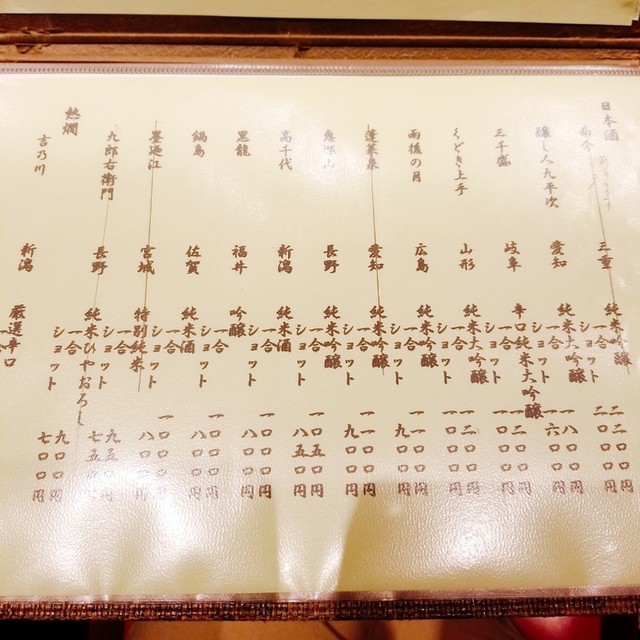 日本酒
而今 三重 純米吟醸
一合 二二〇〇円
ショット 二〇〇〇円
醸し人九平次 愛知 純米大吟醸
一合 一八〇〇円
ショット 一六〇〇円
三千盛 岐阜 辛口純米大吟醸
一合 一二〇〇円
ショット 一〇〇〇円
くどき上手 山形 純米大吟醸
一合 一二〇〇円
ショット 一〇〇〇円
雨後の月 広島 純米吟醸
一合 一一〇〇円
ショット 九〇〇円
蓬莱泉 愛知 純米吟醸
一合 一一〇〇円
ショット 九〇〇円
恵那山 長野 純米吟醸
一合 一〇五〇円
ショット 八五〇円
高千代 新潟 純米酒
一合 一〇〇〇円
ショット 八〇〇円
黒龍 福井 吟醸
一合 一〇〇〇円
ショット 八〇〇円
鍋島 佐賀 純米酒
一合 一〇〇〇円
ショット 八〇〇円
墨廼江 宮城 特別純米
一合 九五〇円
ショット 七五〇円
九郎右衛門 長野 純米ひやおろし
一合 九〇〇円
ショット 七〇〇円
熱燗
吉乃川 新潟 厳選辛口
一合